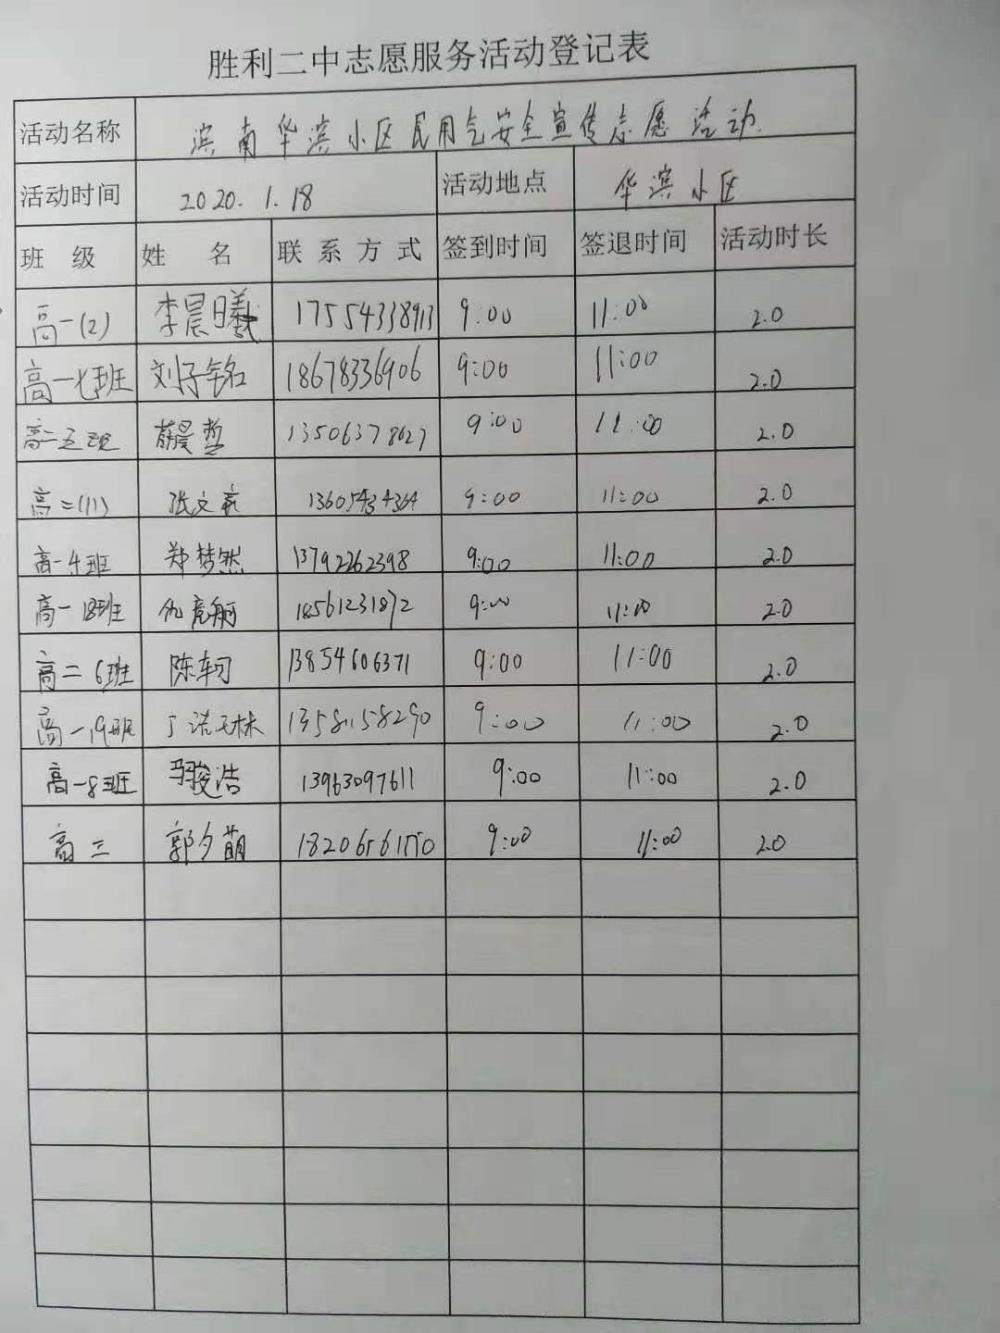 胜利二中志愿服务活动登记表
活动名称 滨南华滨小区民用气安全宣传志愿活动
活动时间 2020.1.18 活动地点 华滨小区
班级 姓名 联系方式 签到时间 签退时间 活动时长
高一(2) 李晨曦 17554338913 9:00 11:00 2.0
高一七班 刘子铭 18678336906 9:00 11:00 2.0
高二五班 薛晨哲 13506378627 9:00 11:00 2.0
高二(11) 张文 13605434364 9:00 11:00 2.0
高一4班 郑梦然 13792262398 9:00 11:00 2.0
高一18班 18561231872 9:00 11:00 2.0
高二6班 陈轲 13854606371 9:00 11:00 2.0
高一19班 丁诺林 13581158290 9:00 11:00 2.0
高一8班 马骏浩 13963097611 9:00 11:00 2.0
高三 郭夕萌 9:00 11:00 2.0